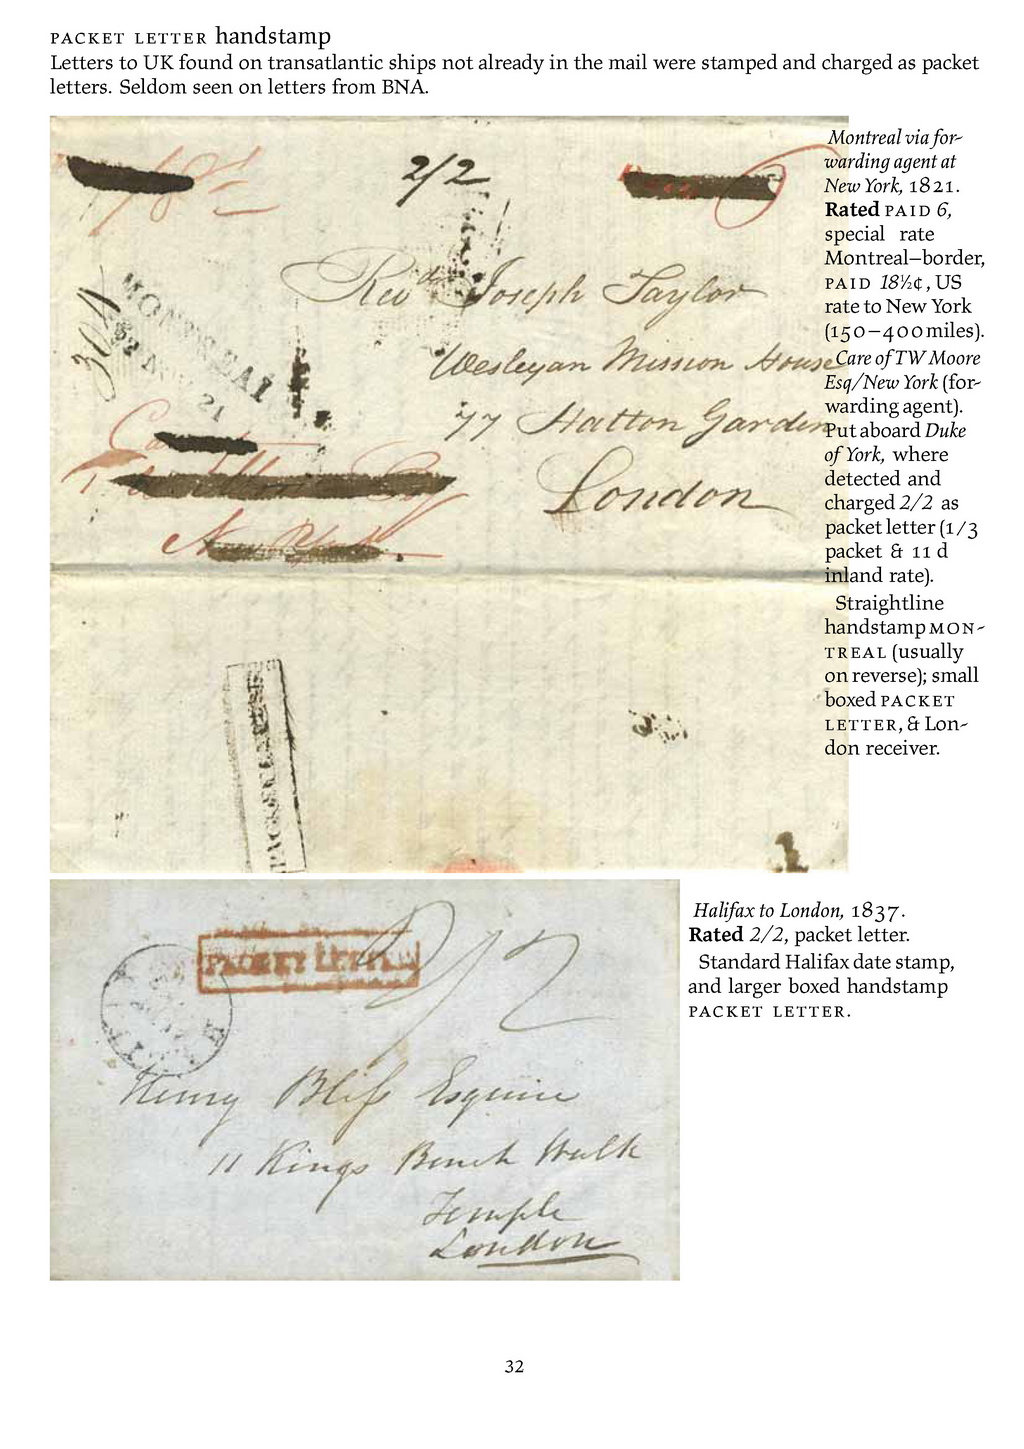 PACKET LETTER handstamp
Letters to UK found on transatlantic ships not already in the mail were stamped and charged as packet
letters. Seldom seen on letters from BNA.
2/2
6
Revd Joseph Taylor
MONTREAL
Wesleyan Mission House
77 Hatton Garden
London
PACKET LETTER
Montreal via for-
warding agent at
New York, 1821.
Rated PAID 6,
special rate
Montreal–border,
PAID 18½¢, US
rate to New York
(150–400 miles).
Care of TW Moore
Esq/New York (for-
warding agent).
Put aboard Duke
of York, where
detected and
charged 2/2 as
packet letter (1/3
packet & 11 d
inland rate).
Straightline
handstamp MON-
TREAL (usually
on reverse); small
boxed PACKET
LETTER, & Lon-
don receiver.
PACKET LETTER
2/2
Henry Bliss Esquire
11 Kings Bench Walk
Temple
London
Halifax to London, 1837.
Rated 2/2, packet letter.
Standard Halifax date stamp,
and larger boxed handstamp
PACKET LETTER.
32